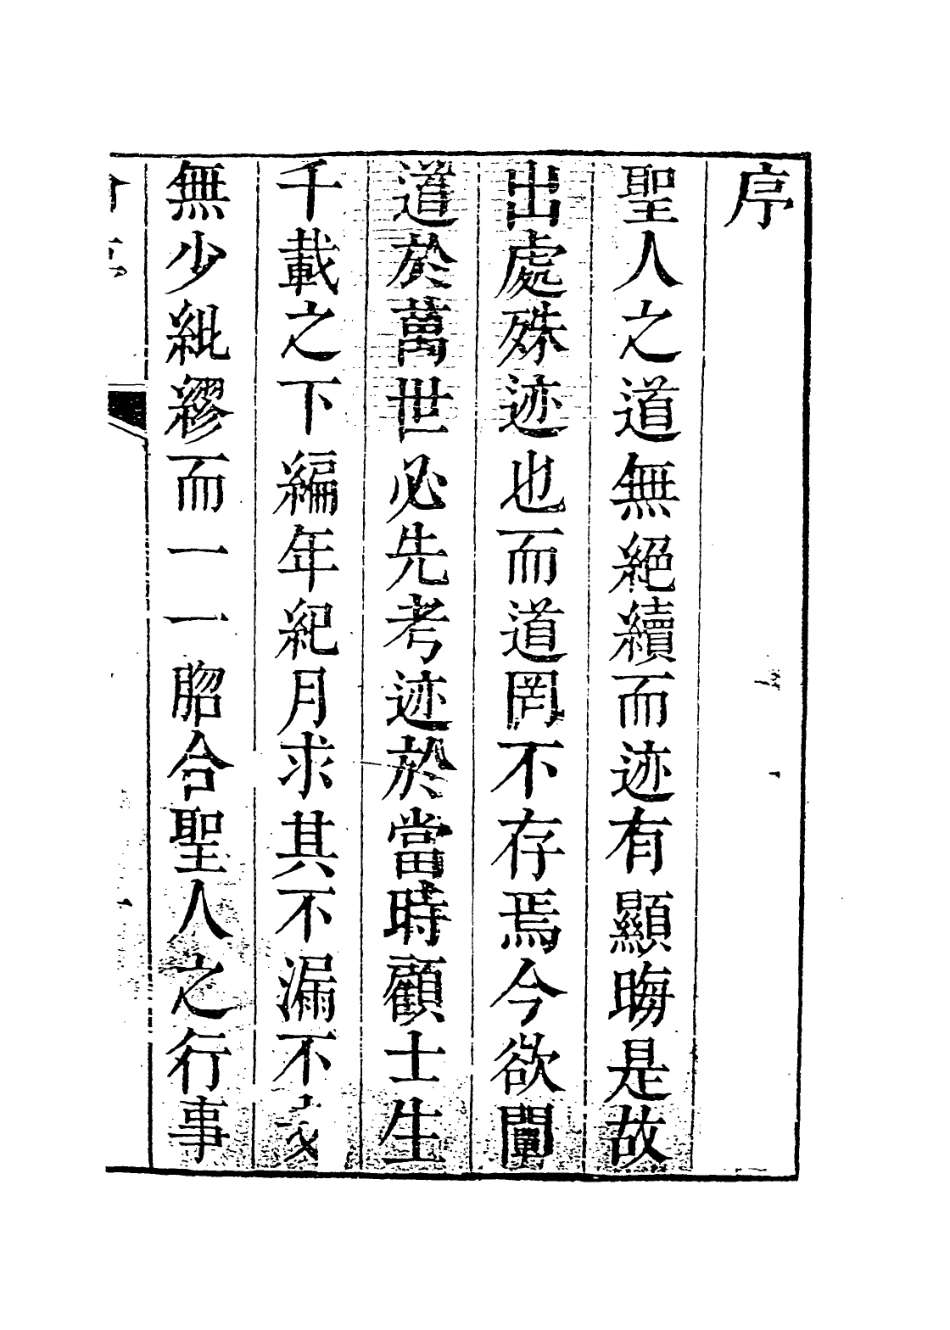 序
聖人之道無絕續而迹有顯晦是故
出處殊迹也而道罔不存焉今欲闡
道於萬世必先考迹於當時顧士生
千載之下編年紀月求其不漏不
無少紕繆而一一脗合聖人之行事